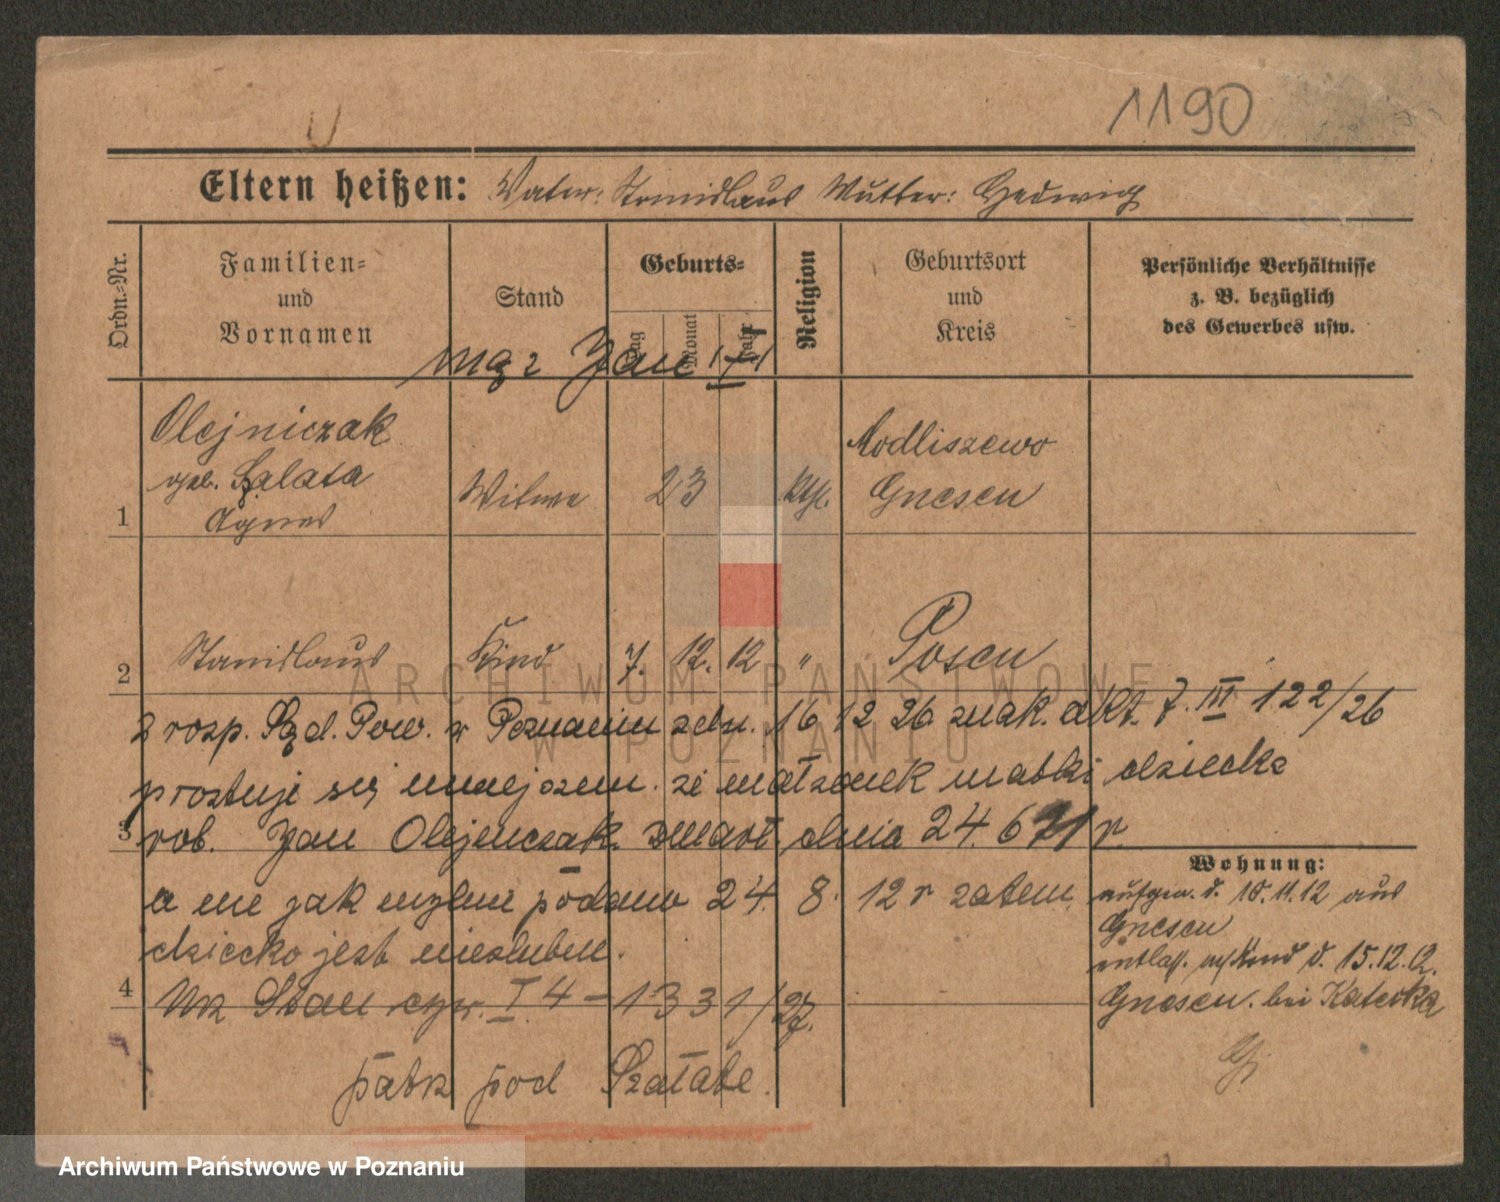 1190
Eltern heißen: Vater: Stanislaus Mutter: Hedwig
Ordn.-Nr.
Familien-
und
Vornamen
Stand
Geburts-
Tag
Monat
Jahr
Religion
Geburtsort
und
Kreis
Persönliche Verhältnisse
z. B. bezüglich
des Gewerbes usw.
mąż Jan
Olejniczak
geb. Szalata
Agnes
1
Witwe
23
kth.
Modliszewo
Gnesen
2
Stanislaus
Kind
7. 12. 12
"
Posen
z rozp. Sąd. Pow. w Poznaniu z dn. 16 12 26 znak. akt. 7. III 122/26
prostuje się że małżonek matki dziecka
3
rob. Jan Olejniczak zmarł dnia 24. 6
a nie jak mylnie podano 24. 8. 12 r zatem
dziecko jest nieślubne.
4
Urz Stan cyw. I. 4 – 1331/27.
patrz pod Szałata.
Wohnung:
aufgen. d. 18. 11. 12 aus
Gnesen
entlass. m/Kind d. 15. 12. 12.
Gnesen. bei
ARCHIWUM PAŃSTWOWE
W POZNANIU
Archiwum Państwowe w Poznaniu